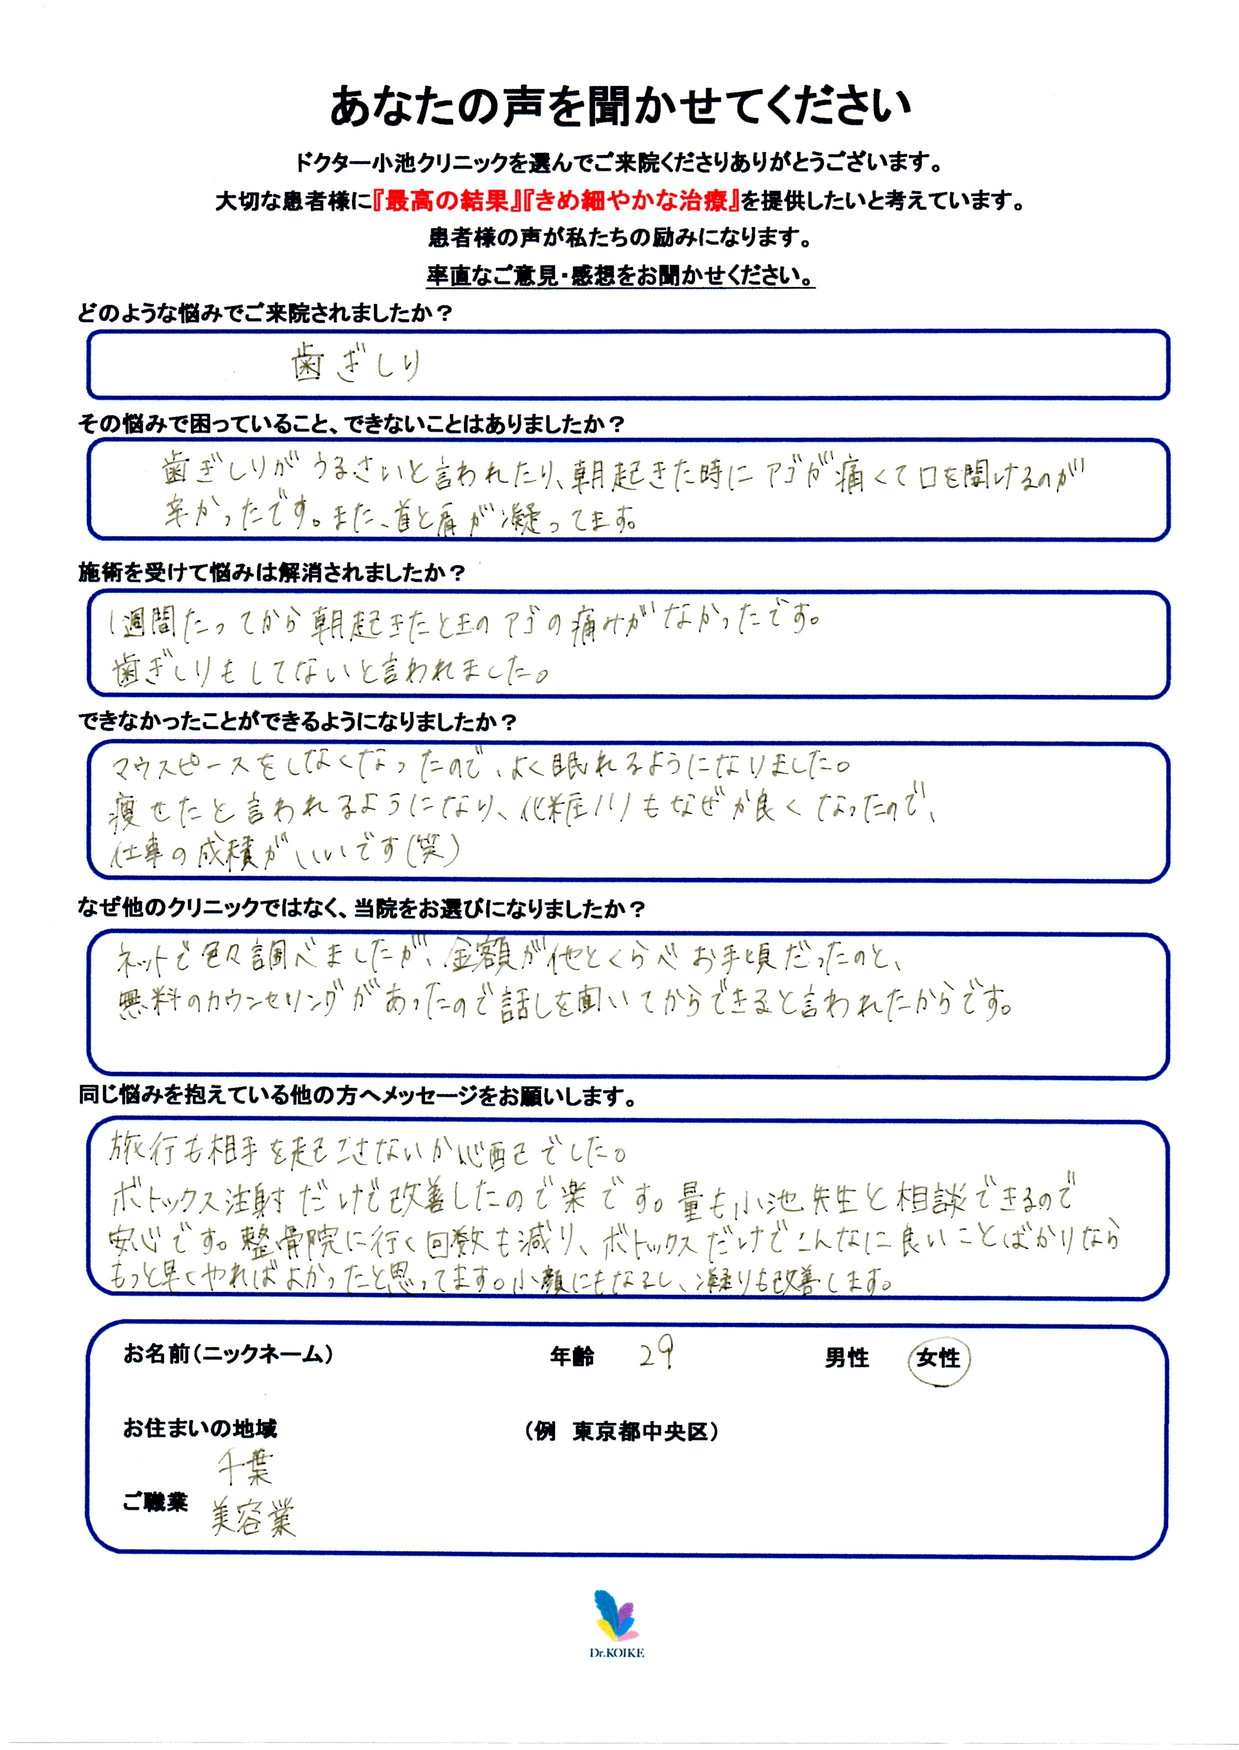 あなたの声を聞かせてください
ドクター小池クリニックを選んでご来院くださりありがとうございます。
大切な患者様に『最高の結果』『きめ細やかな治療』を提供したいと考えています。
患者様の声が私たちの励みになります。
率直なご意見・感想をお聞かせください。
どのような悩みでご来院されましたか？
歯ぎしり
その悩みで困っていること、できないことはありましたか？
歯ぎしりがうるさいと言われたり、朝起きた時にアゴが痛くて口を開けるのが
辛かったです。また、首と肩が凝ってます。
施術を受けて悩みは解消されましたか？
1週間たってから朝起きたときのアゴの痛みがなかったです。
歯ぎしりもしてないと言われました。
できなかったことができるようになりましたか？
マウスピースをしなくなったので、よく眠れるようになりました。
痩せたと言われるようになり、化粧ノリもなぜか良くなったので、
仕事の成積がいいです(笑)
なぜ他のクリニックではなく、当院をお選びになりましたか？
ネットで色々調べましたが、金額が他とくらべお手頃だったのと、
無料のカウンセリングがあったので話しを聞いてからできると言われたからです。
同じ悩みを抱えている他の方へメッセージをお願いします。
旅行も相手を起こさないか心配でした。
ボトックス注射だけで改善したので楽です。量も小池先生と相談できるので
安心です。整骨院に行く回数も減り、ボトックスだけでこんなに良いことばかりなら
もっと早くやればよかったと思ってます。小顔にもなるし、凝りも改善します。
お名前（ニックネーム） 年齢 29 男性 女性
お住まいの地域 （例 東京都中央区）
千葉
ご職業 美容業
Dr.KOIKE